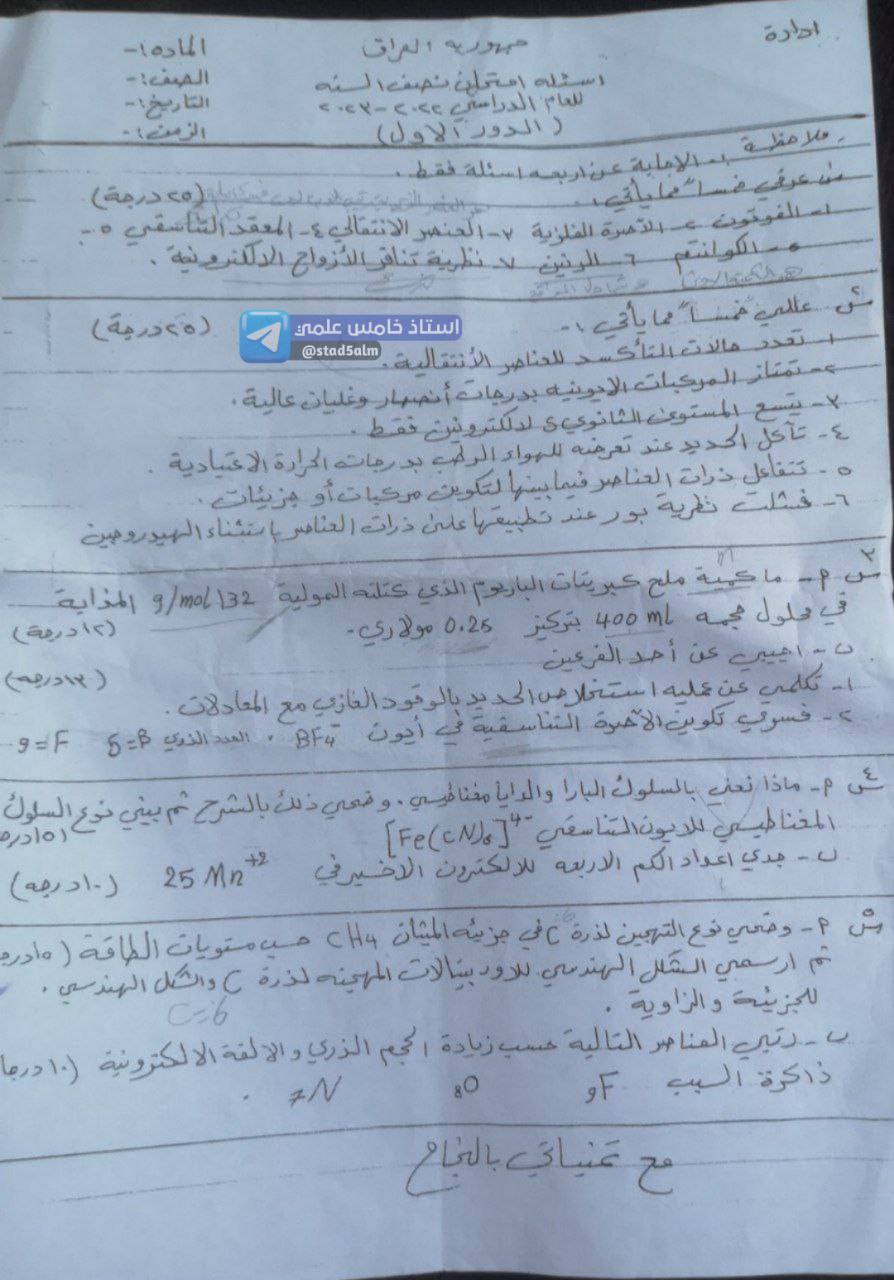 ادارة
جمهورية العراق
المادة:-
اسئلة امتحان نصف السنه
الصف:-
للعام الدراسي ٢٠٢٢ - ٢٠٢٣
التاريخ:-
(الدور الاول)
الزمن:-
ملاحظة :- الاجابة عن اربعه اسئلة فقط.
س١ عرفي خمساً مما يأتي:- (٢٥ درجة)
١- الفوتون ٢- الآصرة الفلزية ٣- العنصر الانتقالي ٤- المعقد التناسقي ٥-
٥- الكوانتم ٦- الرنين ٧- نظرية تنافر الأزواج الالكترونية.
س٢ عللي خمساً مما يأتي:- (٢٥ درجة)
استاذ خامس علمي
@stad5alm
١- تعدد حالات التأكسد للعناصر الأنتقالية.
٢- تمتاز المركبات الايونيه بدرجات أنصهار وغليان عالية.
٣- يتسع المستوى الثانوي S لالكترونين فقط.
٤- تآكل الحديد عند تعرضه للهواء الرطب بدرجات الحرارة الاعتيادية.
٥- تتفاعل ذرات العناصر فيما بينها لتكوين مركبات أو جزيئات.
٦- فشلت نظرية بور عند تطبيقها على ذرات العناصر باستثناء الهيدروجين
س٣ P- ما كمية ملح كبريتات الباريوم الذي كتلته المولية 132 g/mol المذابة
في محلول حجمه 400 ml بتركيز 0.25 مولاري. (١٢ درجة)
ب- اجيبي عن أحد الفرعين (١٣ درجه)
١- تكلمي عن عمليه استخلاص الحديد بالوقود الغازي مع المعادلات.
٢- فسري تكوين الآصرة التناسقية في أيون BF4⁻. العدد الذري 5=B 9=F
س٤ P- ماذا نعني بالسلوك البارا والدايا مغناطيسي. وضحي ذلك بالشرح ثم بيني نوع السلوك
المغناطيسي للايون التناسقي [Fe(CN)6]⁴⁻ (١٥ درجة
ب- جدي اعداد الكم الاربعه للالكترون الاخير في 25 Mn⁺² (١٠ درجه)
س٥ P- وضحي نوع التهجين لذرة C في جزيئه الميثان CH4 حسب مستويات الطاقة (١٥ درجة
ثم ارسمي الشكل الهندسي للاوربيتالات المهجينه لذرة C والشكل الهندسي.
للجزيئة والزاوية.
ب- رتبي العناصر التالية حسب زيادة الحجم الذري والالفة الالكترونية (١٠ درجا
ذاكرة السبب 9F 8O 7N.
مع تمنياتي بالنجاح